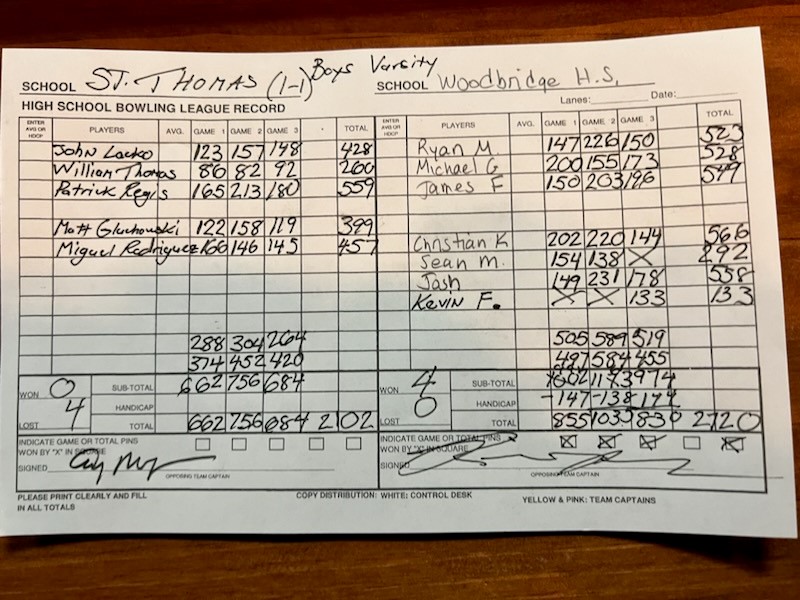 Boys Varsity
SCHOOL ST. THOMAS (1-1) SCHOOL Woodbridge H.S.
HIGH SCHOOL BOWLING LEAGUE RECORD Lanes: Date:
ENTER AVG OR HDCP PLAYERS AVG. GAME 1 GAME 2 GAME 3 TOTAL ENTER AVG OR HDCP PLAYERS AVG. GAME 1 GAME 2 GAME 3 TOTAL
John Lacko 123 157 148 428 Ryan M. 147 226 150 523
William Thomas 86 82 92 260 Michael G 200 155 173 528
Patrick Regis 165 213 180 559 James F 150 203 196 549
Matt Gluchowski 122 158 119 399
Miguel Rodriguez 166 146 145 457 Christian K 202 220 144 566
Sean M. 154 138 X 292
Josh 149 231 178 558
Kevin F. X X 133 133
288 304 264 505 589 519
374 452 420 497 584 455
WON 0 SUB-TOTAL 662 756 684 WON 4 SUB-TOTAL 1002 1173 974
HANDICAP HANDICAP -147 -138
LOST 4 TOTAL 662 756 684 2102 LOST 0 TOTAL 855 1035 830 2720
INDICATE GAME OR TOTAL PINS WON BY "X" IN SQUARE INDICATE GAME OR TOTAL PINS WON BY "X" IN SQUARE X X X X
SIGNED SIGNED
OPPOSING TEAM CAPTAIN OPPOSING TEAM CAPTAIN
PLEASE PRINT CLEARLY AND FILL IN ALL TOTALS COPY DISTRIBUTION: WHITE: CONTROL DESK YELLOW & PINK: TEAM CAPTAINS